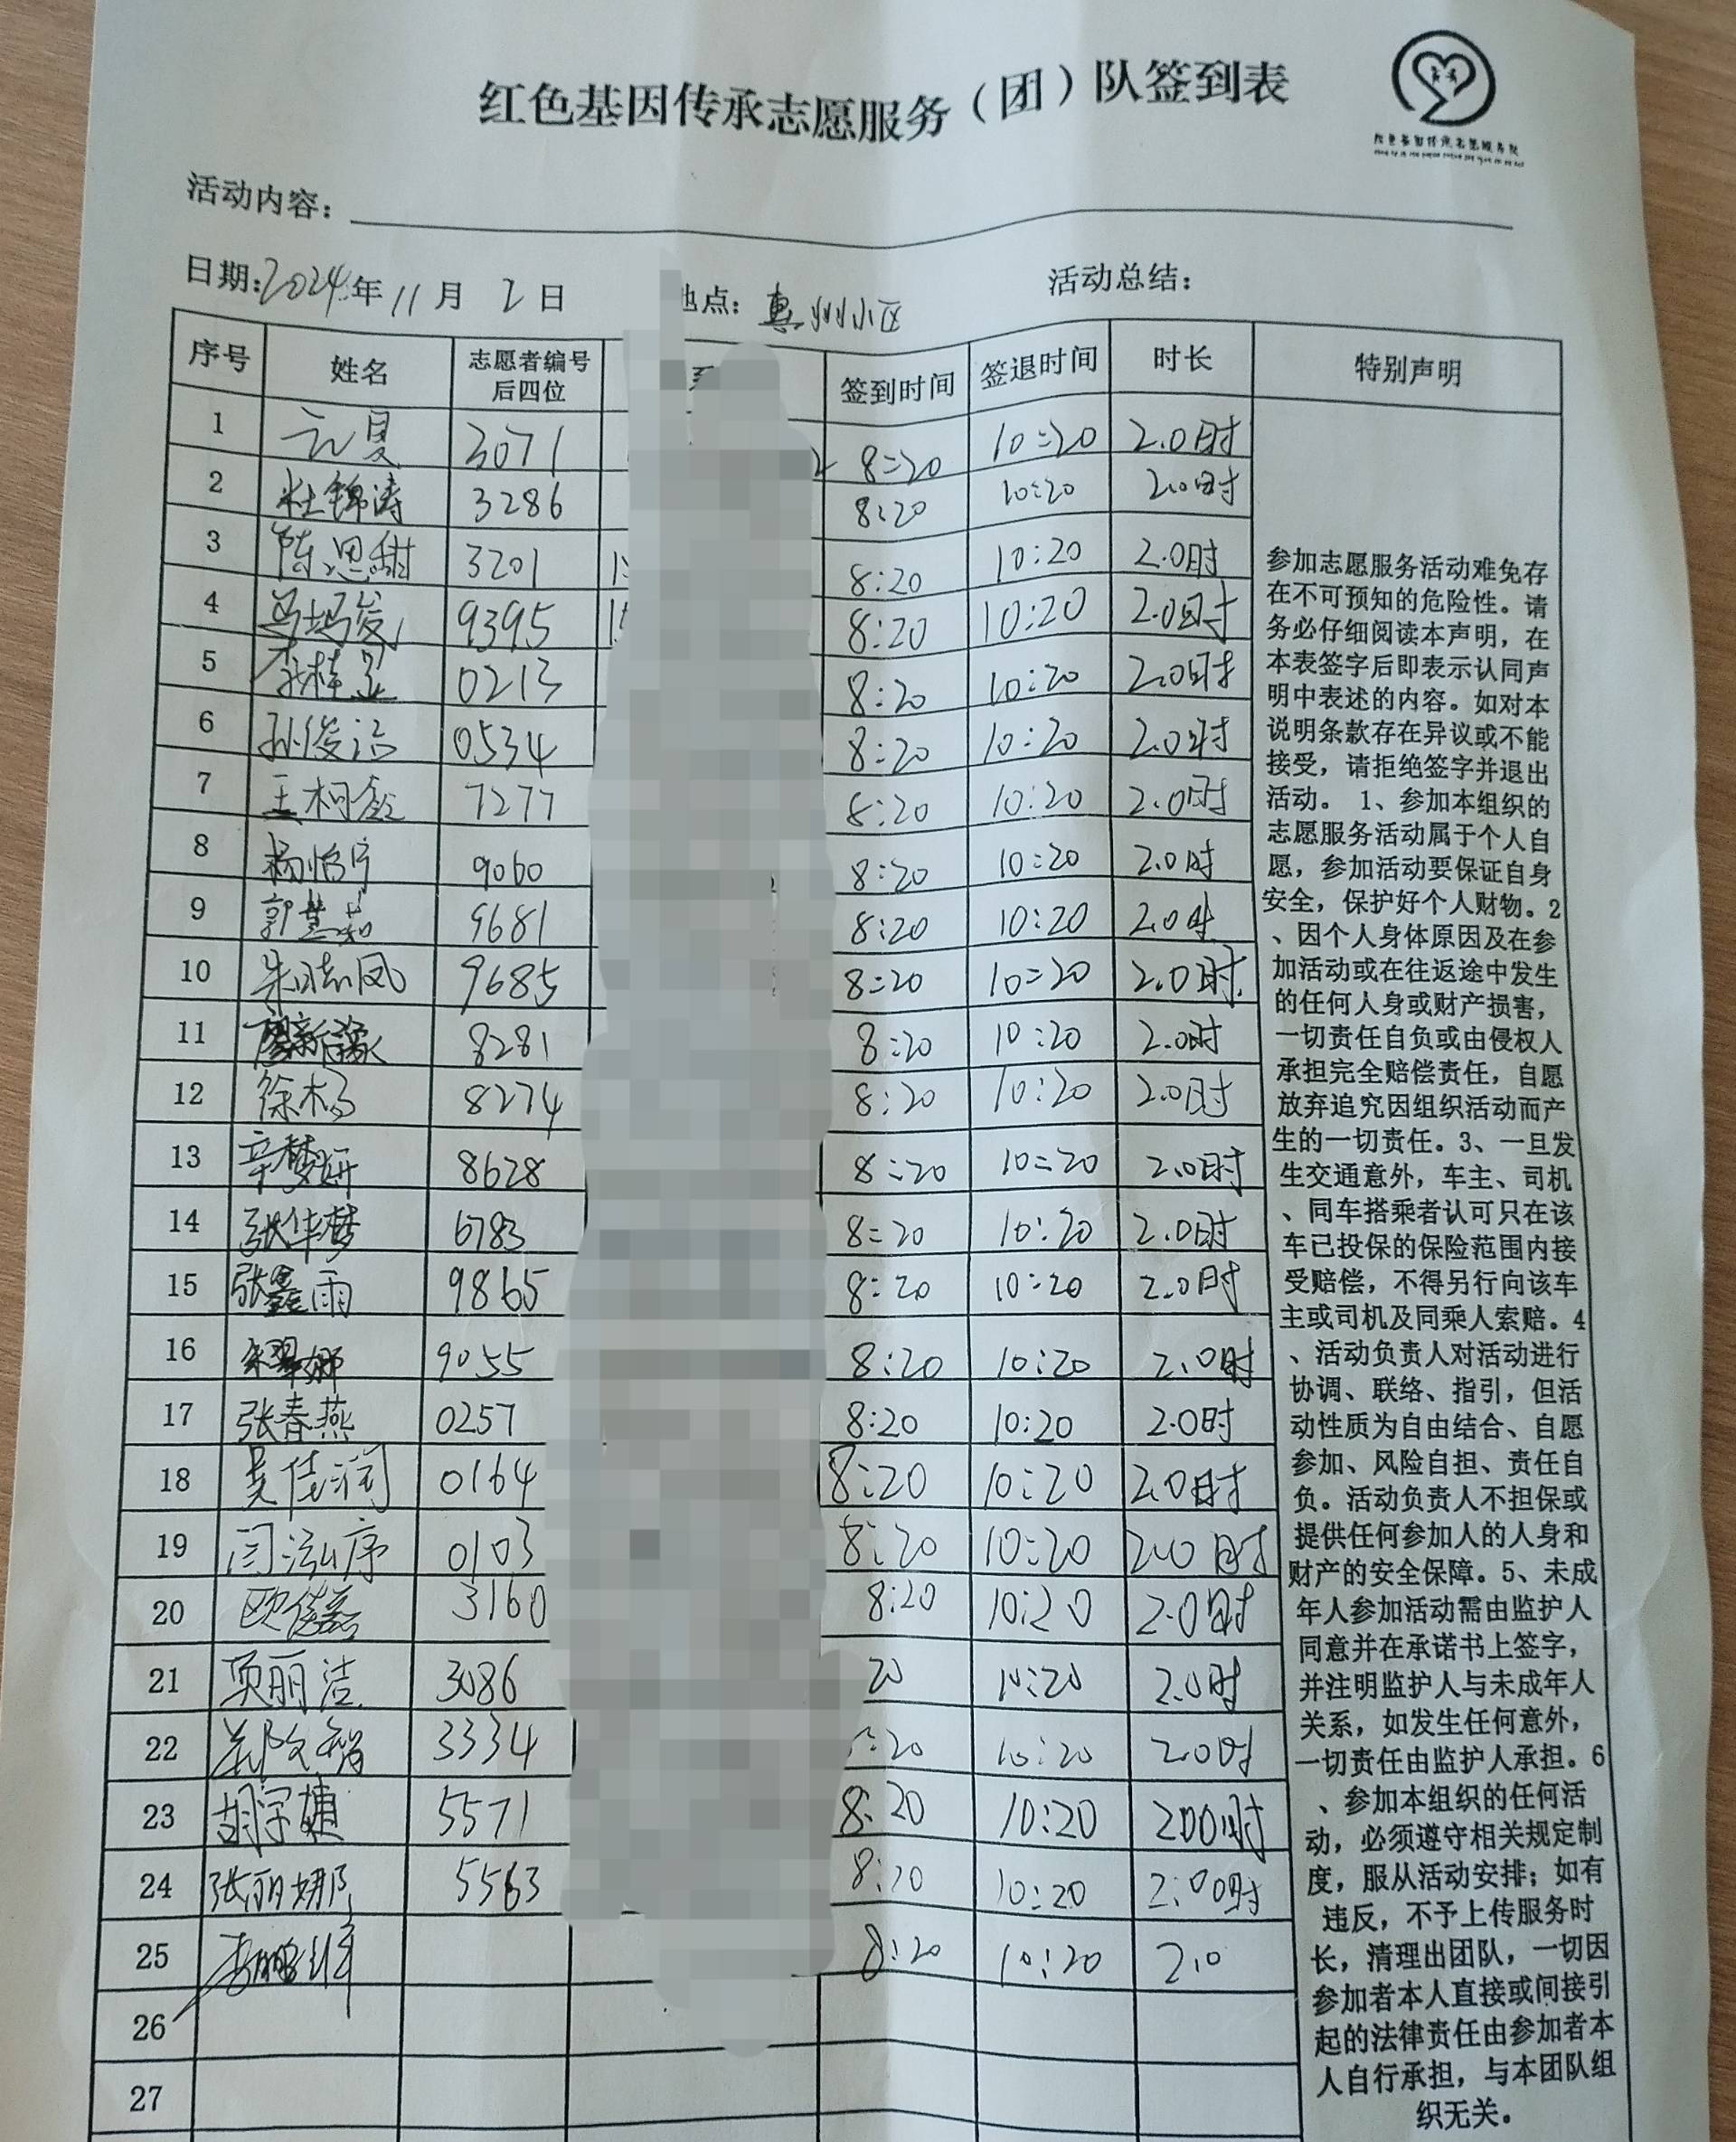 红色基因传承志愿服务（团）队签到表
活动内容：
日期:2024年11月2日 地点：惠州小区 活动总结：
序号 姓名 志愿者编号后四位 签到时间 签退时间 时长 特别声明
1 元夏 3071 8:20 10:20 2.0时
2 杜锦涛 3286 8:20 10:20 2.0时
3 陈思甜 3201 8:20 10:20 2.0时
4 9395 8:20 10:20 2.0时
5 0213 8:20 10:20 2.0时
6 0534 8:20 10:20 2.0时
7 王柯鑫 7277 8:20 10:20 2.0时
8 杨怡宁 9060 8:20 10:20 2.0时
9 郭慧茹 9681 8:20 10:20 2.0时
10 朱晓凤 9685 8:20 10:20 2.0时
11 8281 8:20 10:20 2.0时
12 徐杨 8274 8:20 10:20 2.0时
13 辛梦妍 8628 8:20 10:20 2.0时
14 张华梦 6783 8:20 10:20 2.0时
15 张鑫雨 9865 8:20 10:20 2.0时
16 9055 8:20 10:20 2.0时
17 张春燕 0257 8:20 10:20 2.0时
18 吴佳润 0164 8:20 10:20 2.0时
19 闫泓序 0103 8:20 10:20 2.0时
20 3160 8:20 10:20 2.0时
21 项丽洁 3086 20 10:20 2.0时
22 3334 :20 10:20 2.0时
23 胡宇婕 5571 8:20 10:20 200时
24 张丽娜 5563 8:20 10:20 2:00时
25 8:20 10:20 2.0
26
27
参加志愿服务活动难免存
在不可预知的危险性。请
务必仔细阅读本声明，在
本表签字后即表示认同声
明中表述的内容。如对本
说明条款存在异议或不能
接受，请拒绝签字并退出
活动。1、参加本组织的
志愿服务活动属于个人自
愿，参加活动要保证自身
安全，保护好个人财物。2
、因个人身体原因及在参
加活动或在往返途中发生
的任何人身或财产损害，
一切责任自负或由侵权人
承担完全赔偿责任，自愿
放弃追究因组织活动而产
生的一切责任。3、一旦发
生交通意外，车主、司机
、同车搭乘者认可只在该
车已投保的保险范围内接
受赔偿，不得另行向该车
主或司机及同乘人索赔。4
、活动负责人对活动进行
协调、联络、指引，但活
动性质为自由结合、自愿
参加、风险自担、责任自
负。活动负责人不担保或
提供任何参加人的人身和
财产的安全保障。5、未成
年人参加活动需由监护人
同意并在承诺书上签字，
并注明监护人与未成年人
关系，如发生任何意外，
一切责任由监护人承担。6
、参加本组织的任何活
动，必须遵守相关规定制
度，服从活动安排；如有
违反，不予上传服务时
长，清理出团队，一切因
参加者本人直接或间接引
起的法律责任由参加者本
人自行承担，与本团队组
织无关。